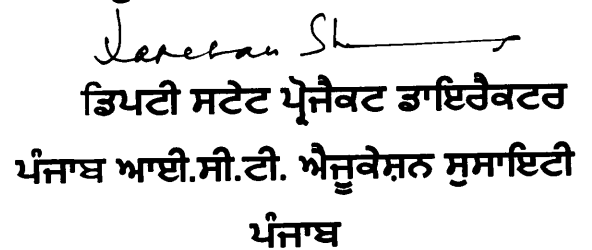 ਡਿਪਟੀ ਸਟੇਟ ਪ੍ਰੋਜੈਕਟ ਡਾਇਰੈਕਟਰ
ਪੰਜਾਬ ਆਈ.ਸੀ.ਟੀ. ਐਜੂਕੇਸ਼ਨ ਸੁਸਾਇਟੀ
ਪੰਜਾਬ